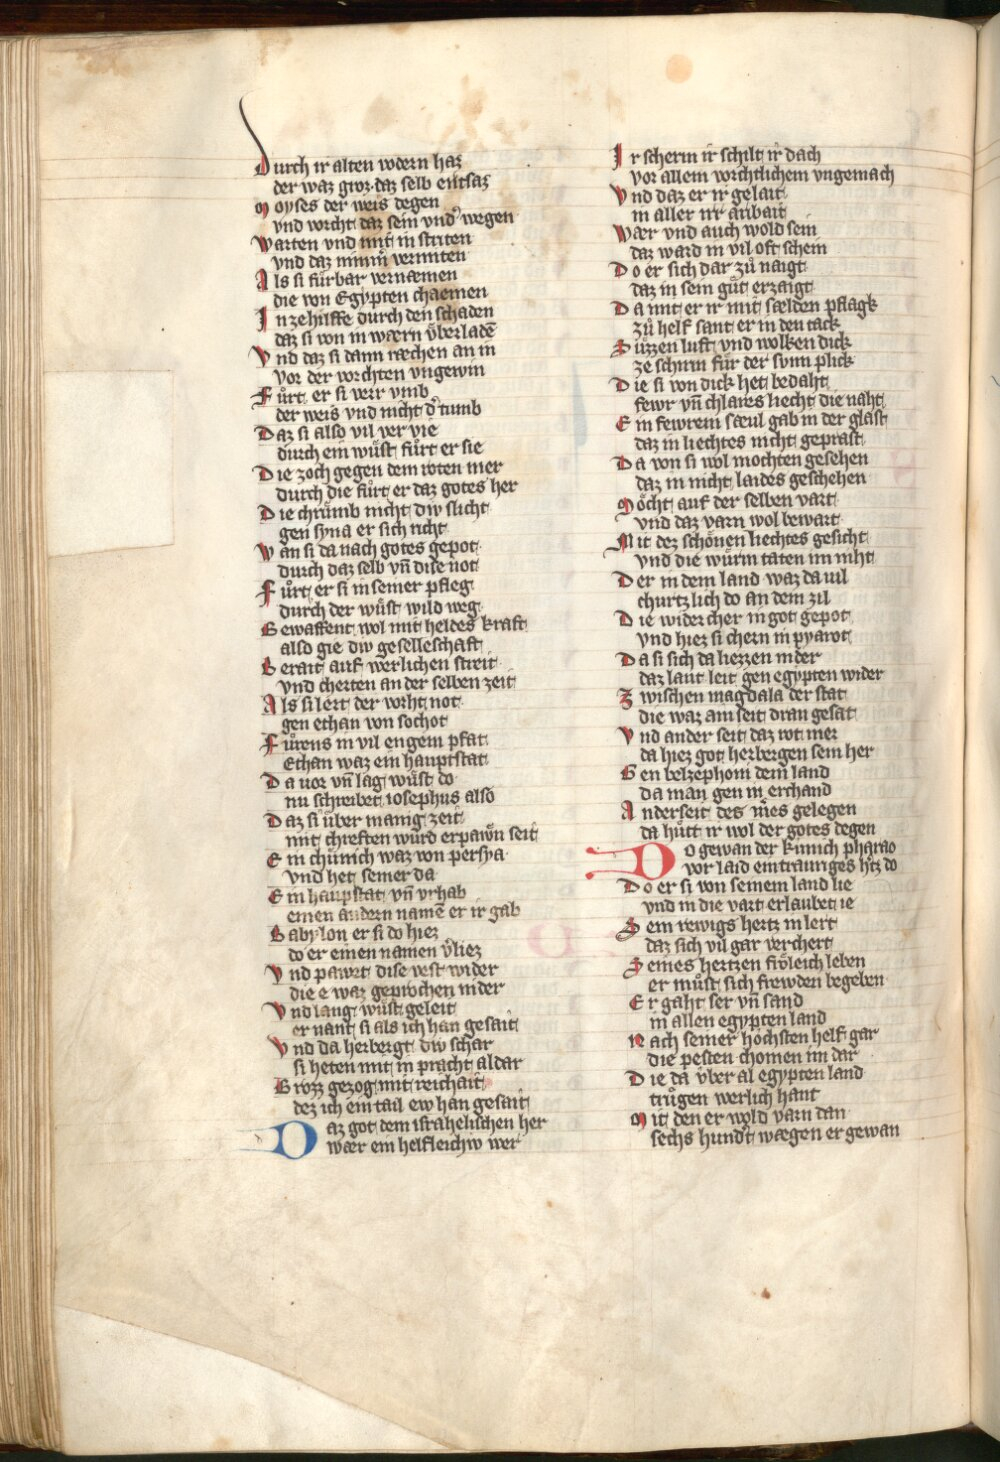 Durch ir alten wdern haz
der waz groz daz selb entsaz
Moyses der weis degen
vnd vorcht daz sein vnd' wegen
Warten vnd mit in striten
vnd daz nimm vermiten
Als si fürbar vernæmen
die von Egypten chaemen
In zehilffe durch den schaden
daz si von in wærn v̊berladē
Vnd daz si dann ræchen an in
vor der vorchten vngewin
Fůrt er si verr vmb
der weis vnd nicht d' tumb
Daz si also vil ver vie
durch ein wůst fůrt er sie
Die zoch gegen dem roten mer
durch die fůrt er daz gotes her
Die chrůmb nicht diw slicht
gen syna er sich richt
Wan si da nach gotes gepot
durch daz selb vn̄ dise not
Fůrt er si in seiner pfleg
durch der wůst wild weg
Gewaffent wol mit heldes kraft
also gie diw geselleschaft
Berait auf werlichen streit
vnd cherten an der selben zeit
Als si lert der vorht not
gen ethan von sochot
Fůrens in vil engem pfat
Ethan waz ein hauptstat
Da vor vn̄ lag wůst do
nu schreibet iosephus also
Daz si über manig zeit
mit chreften wurd erpawn seit
Ein chünich waz von persya
vnd het seiner da
Ein haupstat vn̄ vrhab
einen andern namē er ir gab
Babylon er si do hiez
do er einen namen v̊liez
Vnd pawrt dise vest wider
die e waz geprochen nider
Vnd lang wůst geleit
er nant si als ich han gesait
Vnd da herbergt diw schar
si heten mit in pracht aldar
Grozz gezog mit reichait
dez ich ein tail ew han gesait
Daz got dem israhelischen her
wær ein helfleichiw wer
Ir scherm ir schilt ir dach
vor allem vorchtlichem vngemach
Vnd daz er ir gelait
in aller irr aribait
Wær vnd auch wold sein
daz ward in vil oft schein
Do er sich dar zů naigt
daz in sein gůt erzaigt
Da mit er ir mit sælden pflagk
zů helf sant er in den tack
Süzzen luft vnd wolken dick
ze schirm für der sunn plick
Die si von dick het bedaht
fewr vn̄ chlares liecht die naht
Ein fewrein sæul gab in der glast
daz in liechtes nicht geprast
Da von si wol mochten gesehen
daz in nicht laides geschehen
Möcht auf der selben vart
vnd daz varn wol bewart
Mit dez schönen liechtes gesicht
vnd die würm taten im niht
Der in dem land waz da vil
churtzlich do an dem zil
Die wider cher in got gepot
vnd hiez si chern in pyarot
Da si sich da liezzen nider
daz laut leit gen egypten wider
Zwischen magdala der stat
die waz ain seit dran gesat
Vnd ander seit daz rot mer
da hiez got herbergen sein her
Gen belzephoni dem land
da man gen in erchand
Anderseit des m̄es gelegen
da hůtt ir wol der gotes degen
Do gewan der kunich pharao
vor laid ein trauriges h'tz do
Do er si von seinem land lie
vnd in die vart erlaubet ie
Sein rewigs hertz in lert
daz sich vil gar verchert
Seines hertzen fröleich leben
er můst sich frewden begeben
Er gaht ser vn̄ sand
in allen egypten land
Nach seiner höchsten helf gar
die pesten chomen im dar
Die da vber al egypten land
trůgen werlich hant
Mit den er wold varn dan
sechs hund't wægen er gewan